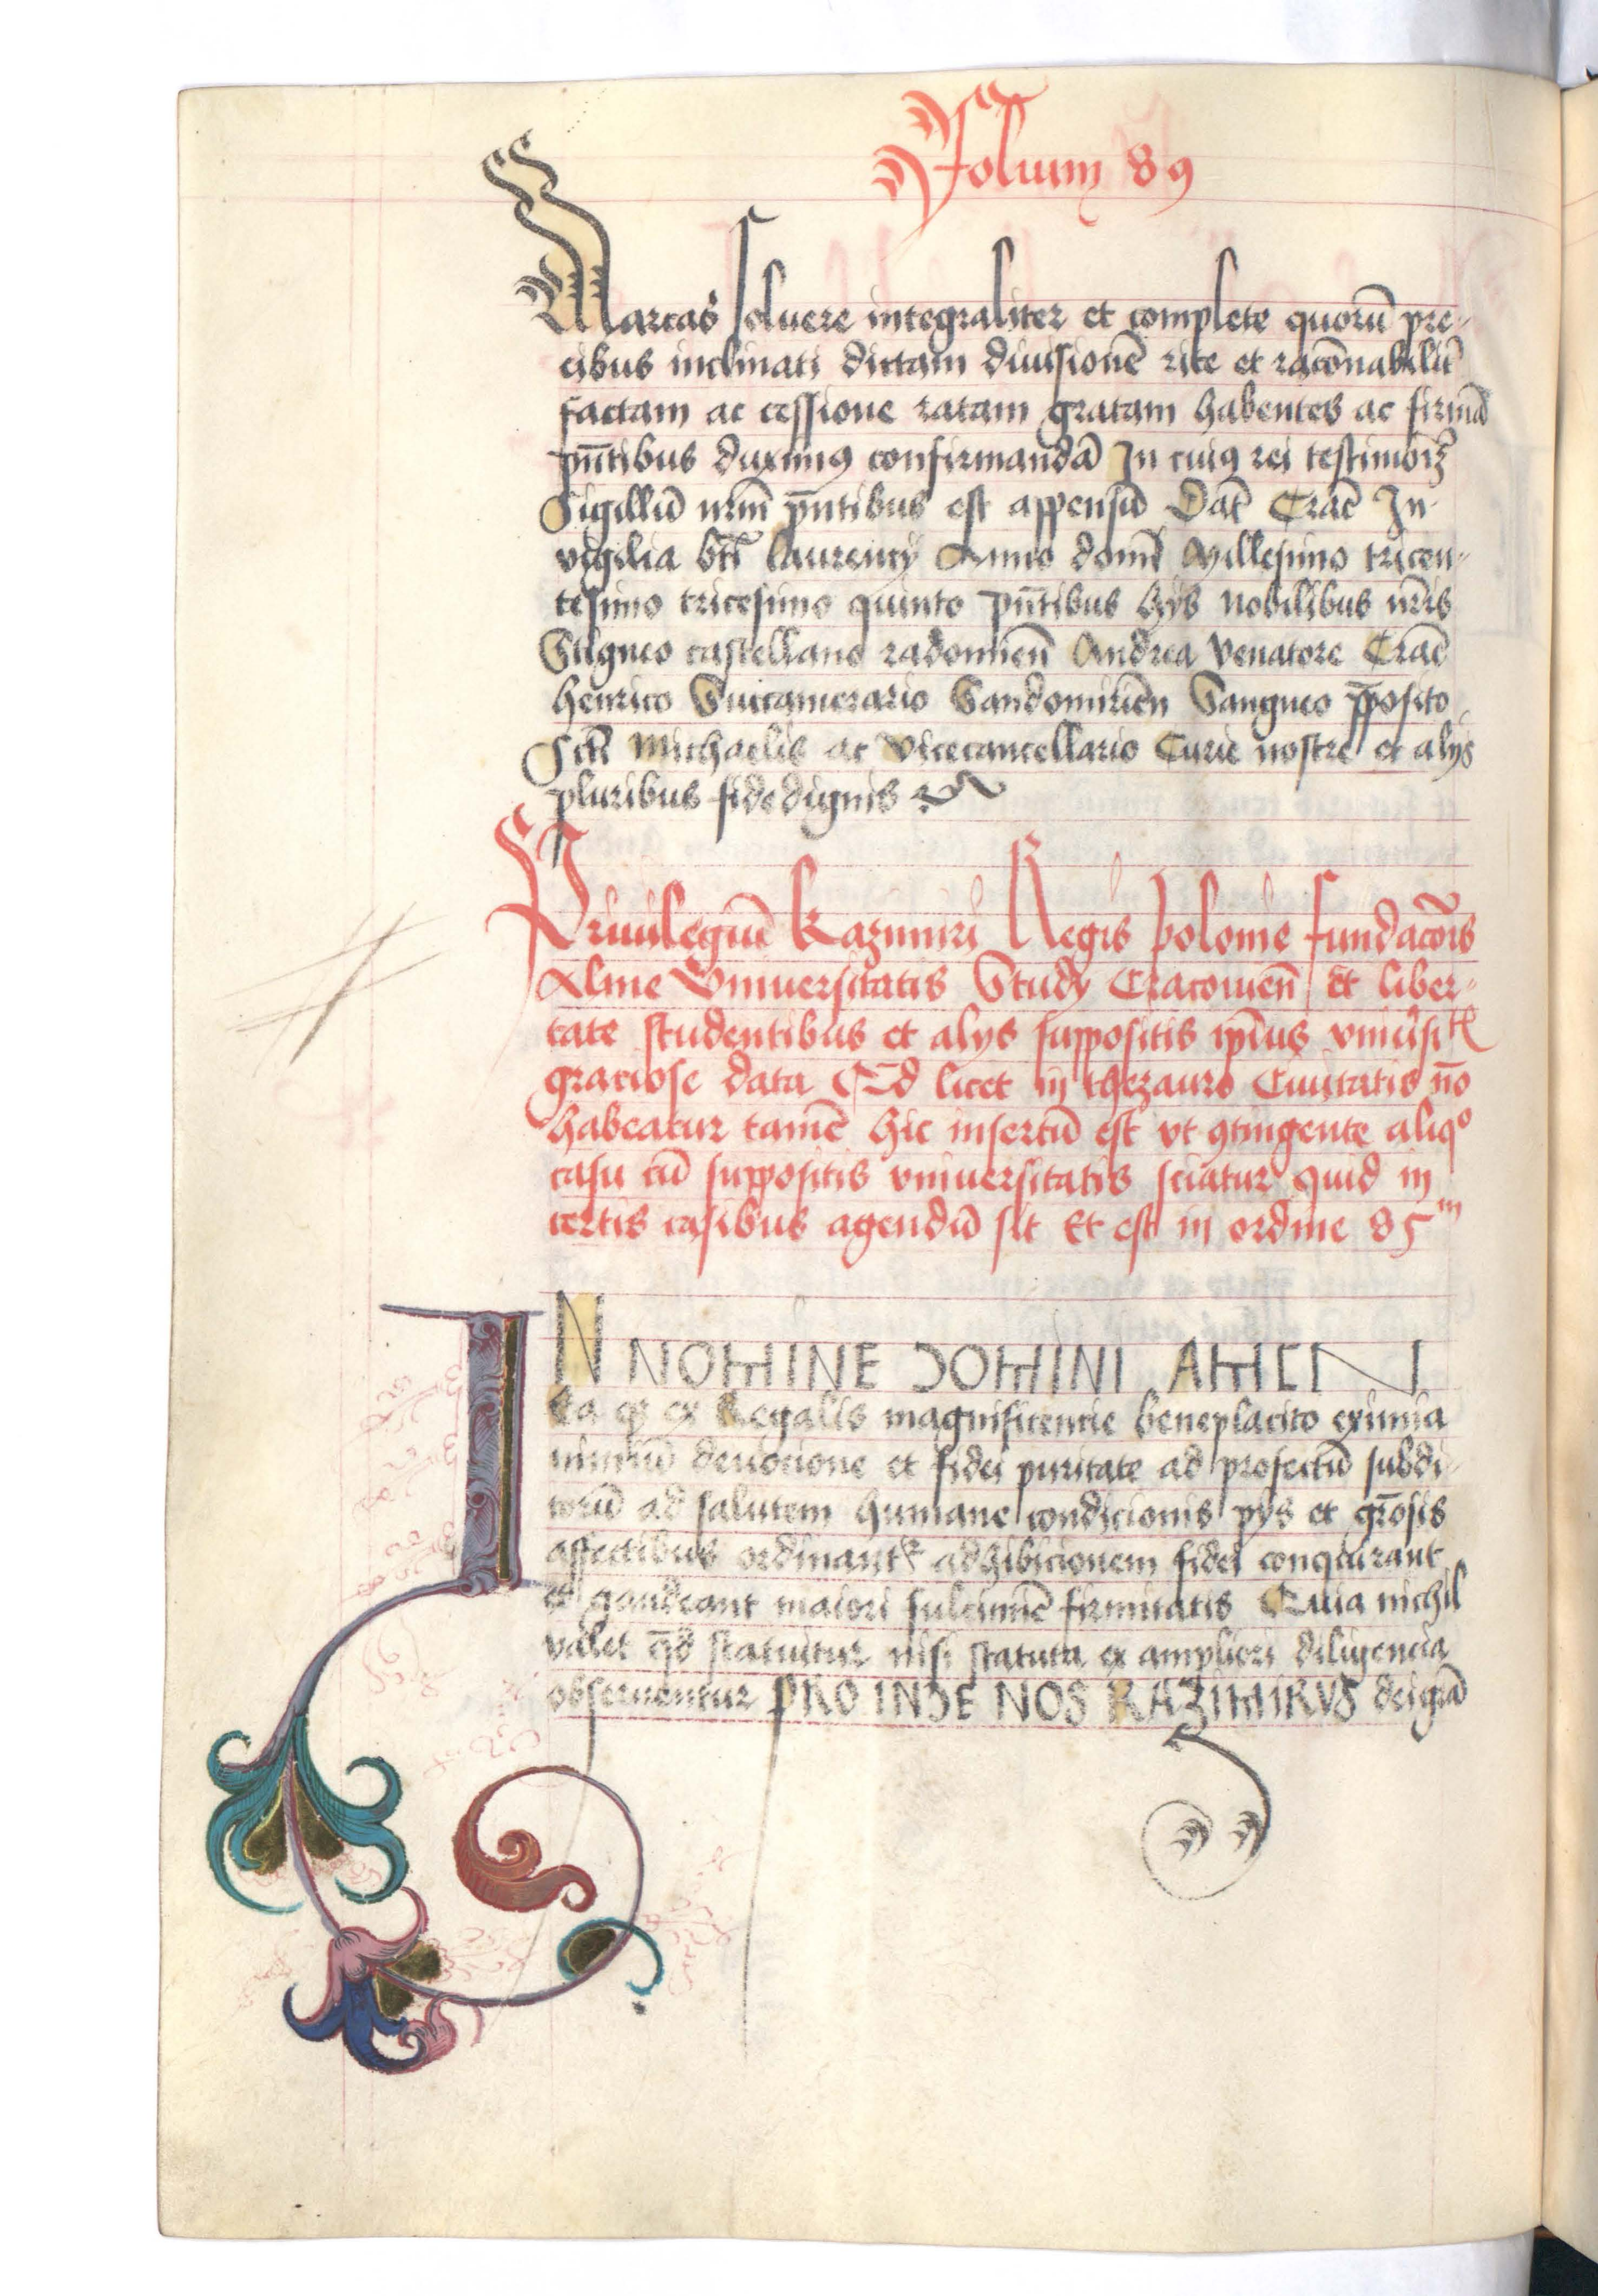 Folium 89
Marcas soluere integraliter et complete quorū pre-
cibus inclinati dictam diuisionē rite et racōnabilit̄
factam ac cessione ratam gratam habentes ac firmā
pn̄tibus duximꝰ confirmandā In cuiꝰ rei testimoīꝫ
Sigillū nrm̄ pn̄tibus est appensū Dat̄ Crac̄ In
vigilia bt̄i laurencÿ Anno domī Millesimo tricen-
tesimo tricesimo quinto pn̄tibus hÿs Nobilibus nr̄is
Stigneo castellano radomien̄ Andrea Venatore Crac̄
henrico Succamerario Sandomirien̄ Sangneo p̄posito
Sct̄i Michaelis ac vicecancellario Curie nostre et alÿs
pluribus fidedignis
Priuilegiū kazimiri Regis polonie fundacōis
Alme Vniuersitatis Studÿ Cracouien̄ Et liber-
tate studentibus et alÿs suppositis ip̄ius vniu̓sitꝭ
graciose data Qd̄ licet in thezauro Ciuitatis nō
habeatur tamē hic insertū est vt ꝯtingente aliqº
casu cū suppositis vniuersitatis sciatur quid in
certis casibus agendū sit Et est in ordine 85ᵐ
IN NOMINE DOMINI AMEN
Ea qꝫ ex Regalis magnificencie beneplacito eximia
nimiū deuocione et fidei puritate ad profectū subdi-
torū ad salutem humane condicionis pÿs et gr̄osis
affectibus ordinantᷣ adhibicionem fidei conquirant
et gaudeant maiori fulcimē firmitatis Quia nichil
valet qd̄ statuitur nisi statuta ex ampliori diligencia
obseruentur PROINDE NOS KAZIMIRVS dei gr̄a